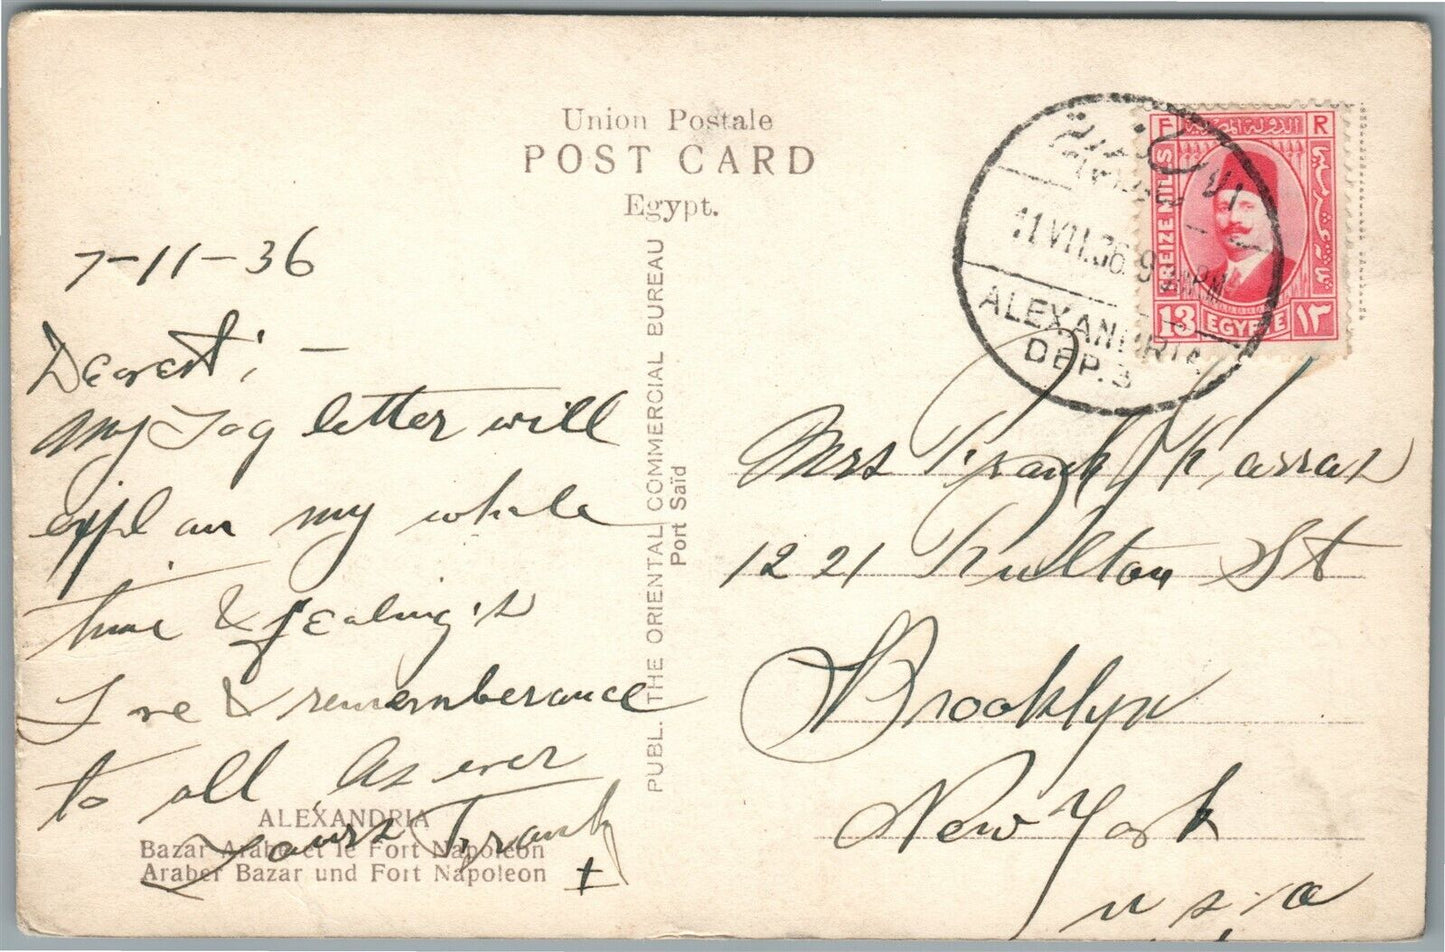 Union Postale
POST CARD
Egypt.
7-11-36
Dearest; –
My Tog letter will
expl an my whole
time & fealing's
Love & rememberance
to all As ever
Yours Frank
ALEXANDRIA
Bazar Arabe et le Fort Napoléon
Araber Bazar und Fort Napoleon
PUBL. THE ORIENTAL COMMERCIAL BUREAU
Port Saïd
F R
الدولة المصرية
TREIZE MILLS
13 EGYPTE ١٣
11 VII.36. 9
ALEXANDRIA
DEP. 3
Mrs Frank Karras
1221 Fulton St
Brooklyn
New York
U.S.A